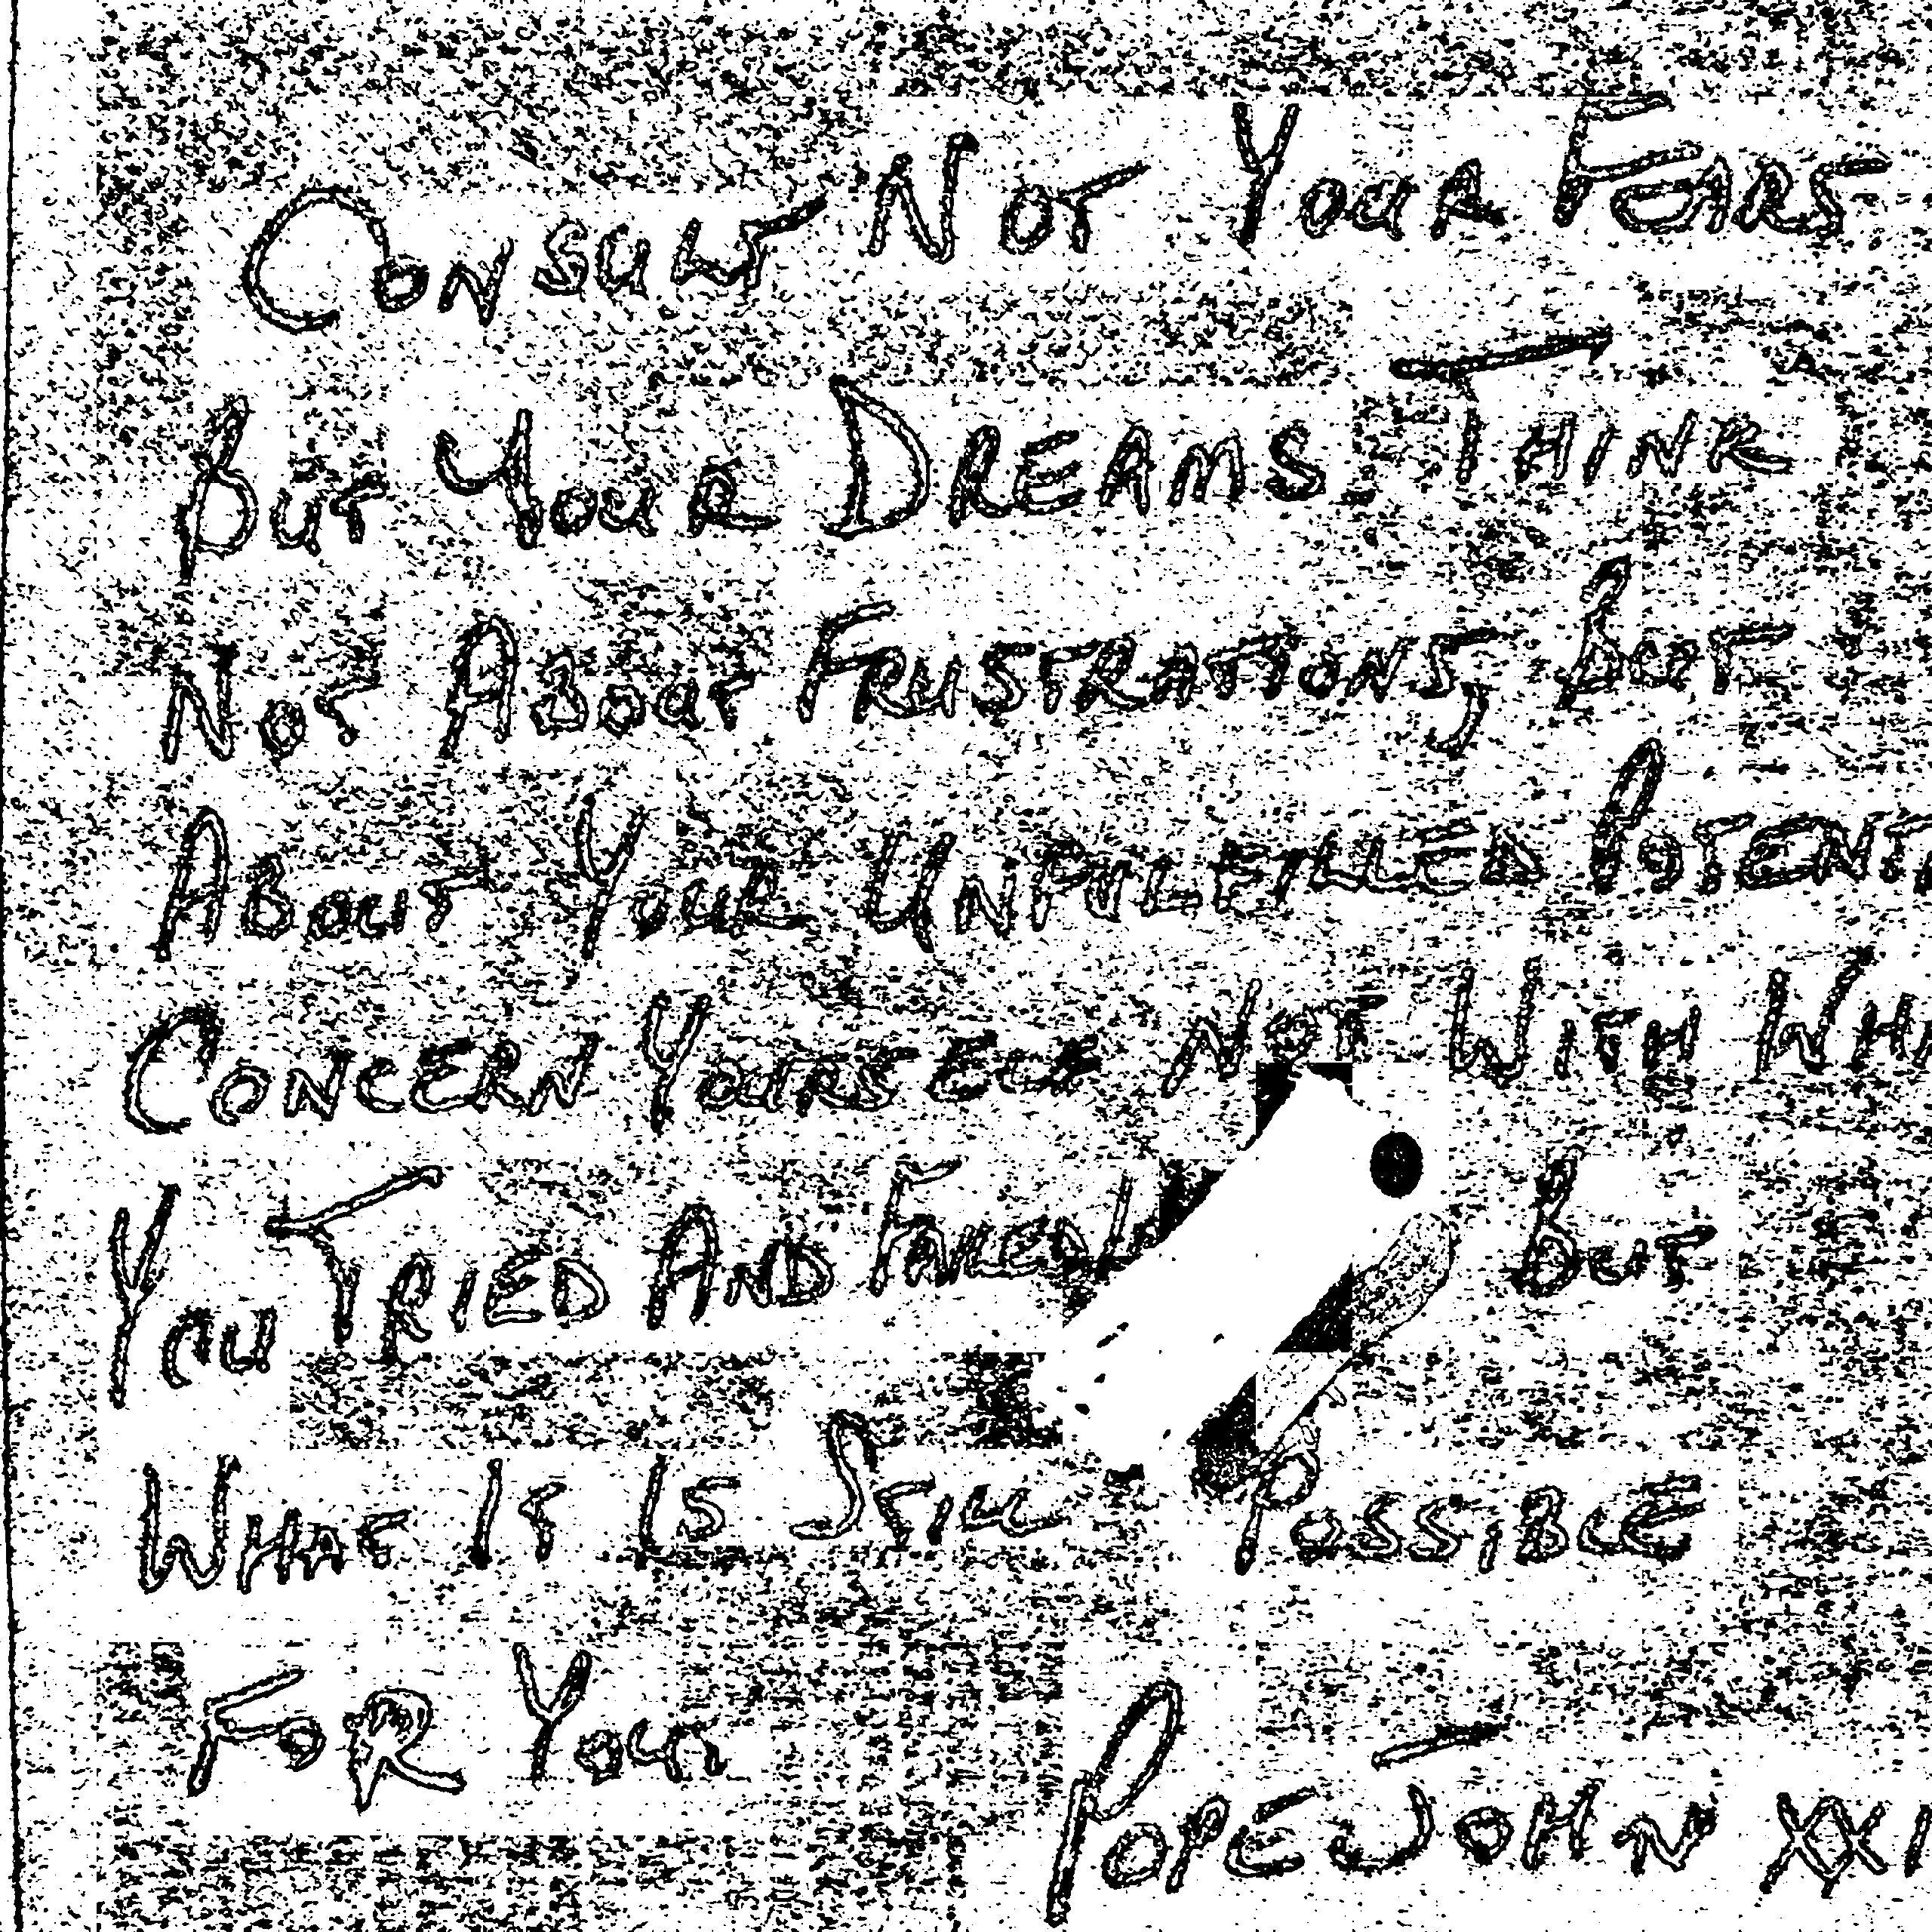 CONSULT NOT YOUR FEARS
BUT YOUR DREAMS. THINK
NOT ABOUT FRUSTRATIONS, BUT
ABOUT YOUR UNFULFILLED POTENT
CONCERN YOURSELF NOT WITH WHA
YOU TRIED AND FAILED BUT
WHAT IT IS STILL POSSIBLE
FOR YOU
POPE JOHN XXI